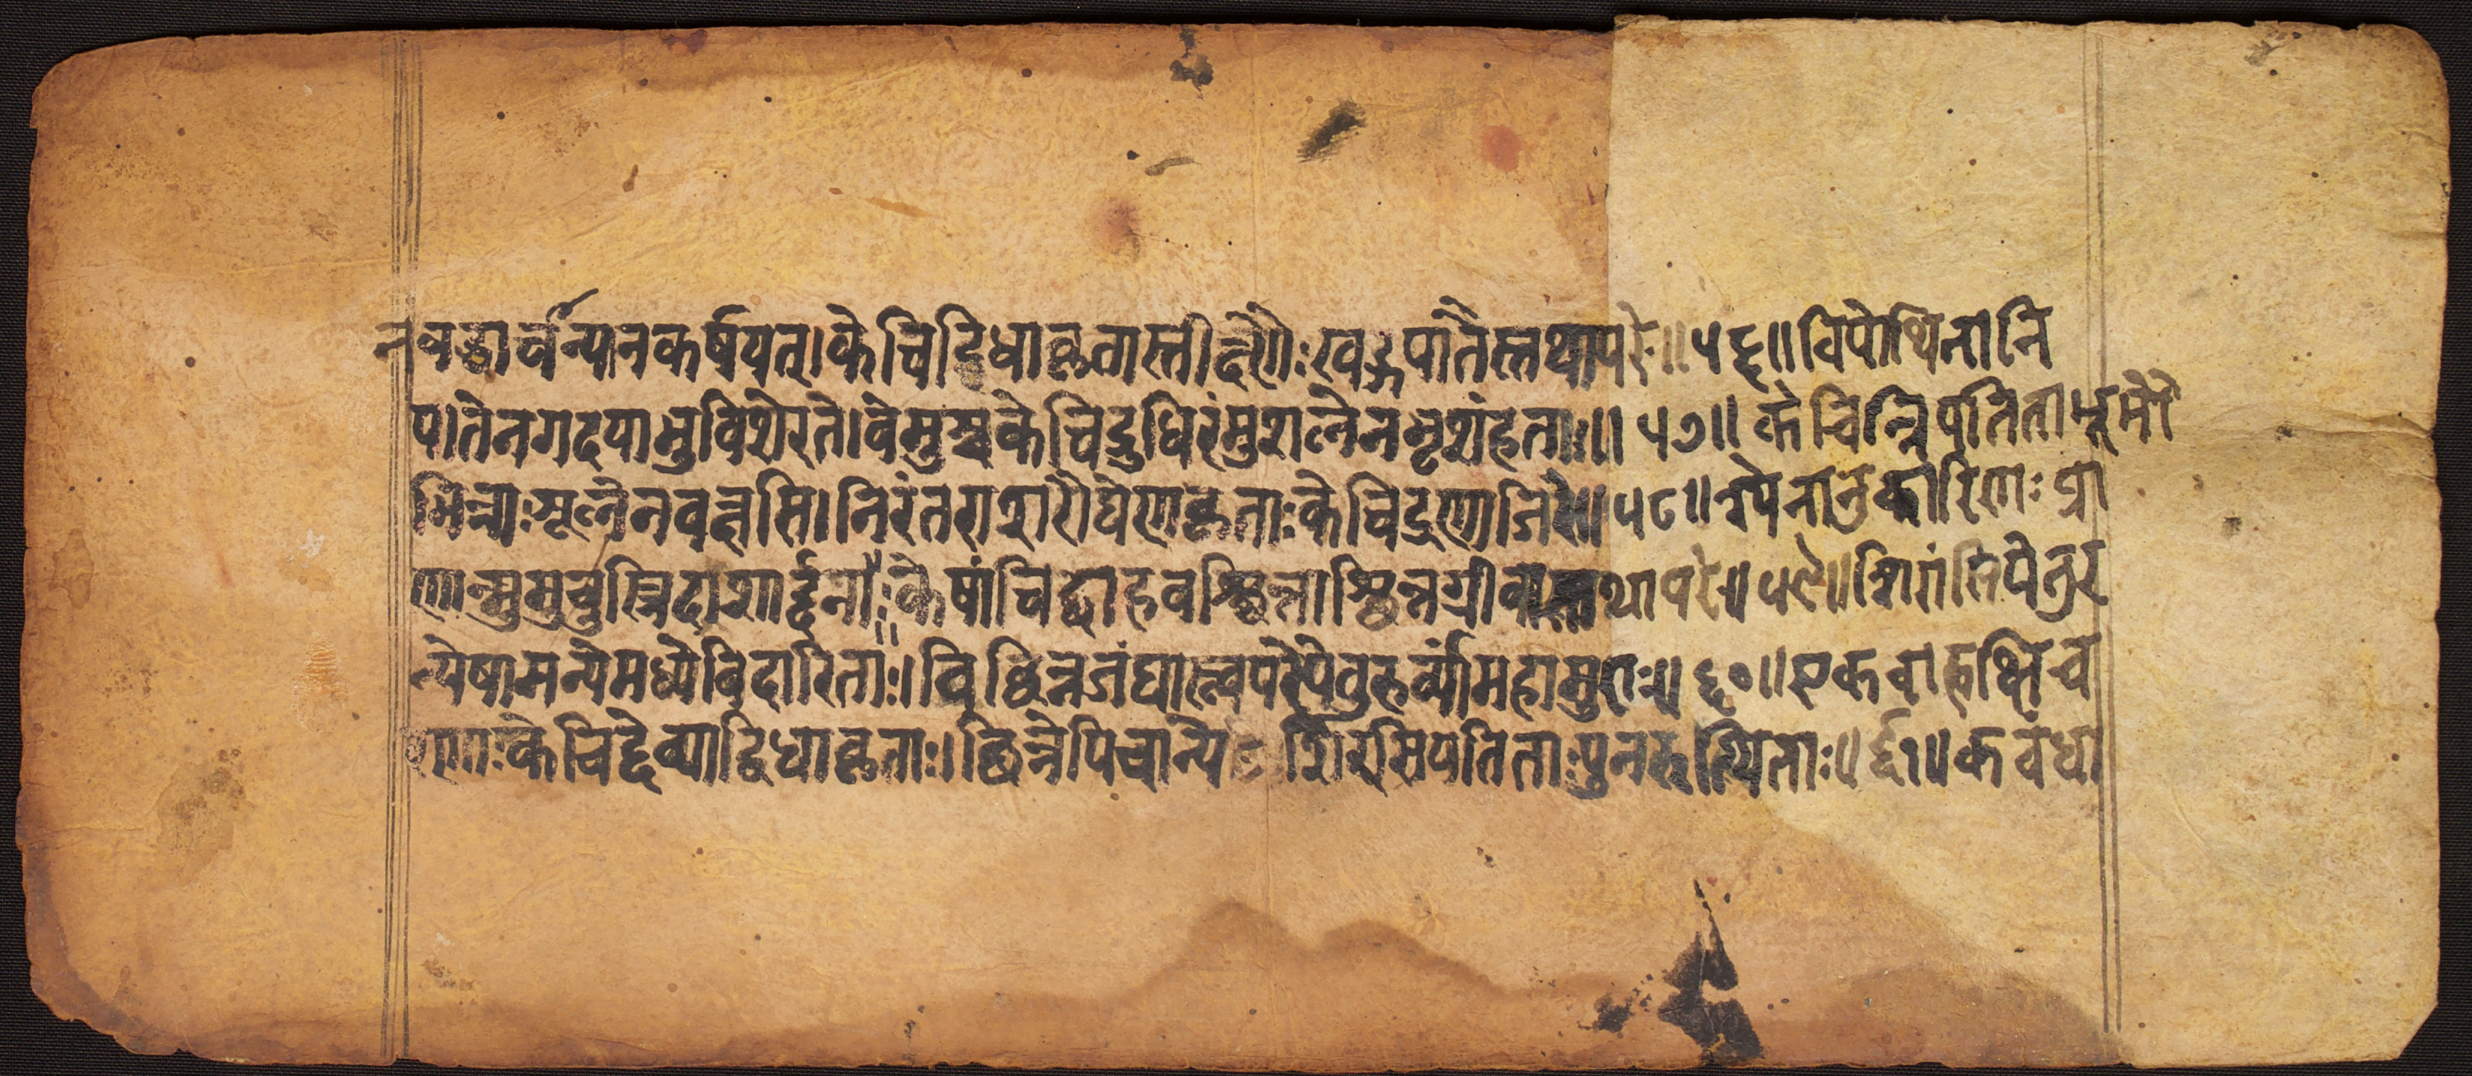 नबद्धा चान्यानकर्षयत्। केचिद्द्विधाकृतास्तीक्ष्णैः खड्गपातैस्तथापरे॥ ५६॥ विपोथितानि
पातेनगदयाभुविशेरते। वेमुश्चकेचिद्रुधिरंमुशलेनभृशंहताः॥ ५७॥ केचिन्निपतिताभूमौ
भिन्नाःशूलेनवक्षसि। निरंतराशरौघेणकृताःकेचिद्रणाजिरे॥ ५८॥ श्येनानुकारिणःप्रा
णान्मुमुचुस्त्रिदशार्द्दनाः। केषांचिद्बाहवश्छिन्नाश्छिन्नग्रीवास्तथापरे॥ ५९॥ शिरांसिपेतुर
न्येषामन्येमध्येविदारिताः। विछिन्नजंघास्त्वपरेपेतुरुर्व्यांमहासुराः॥ ६०॥ एकबाह्वक्षिच
रणाःकेचिद्देव्याद्विधाकृताः। छिन्नेपिचान्येशिरसिपतिताःपुनरुत्थिताः॥ ६१॥ कबंधा